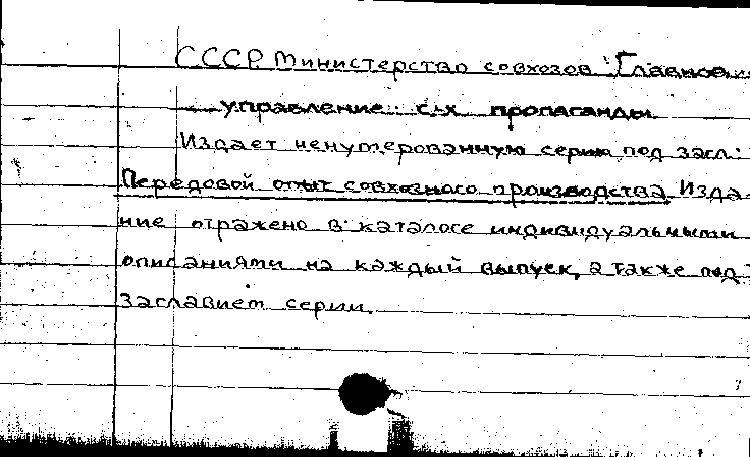 СССР. Министерство совхозов. Главное
управление с.-х. пропаганды.
Издает ненумерованную серию под загл.:
Передовой опыт совхозного производства. Изда-
ние отражено в каталоге индивидуальными
описаниями на каждый выпуск, а также под
заглавием серии.